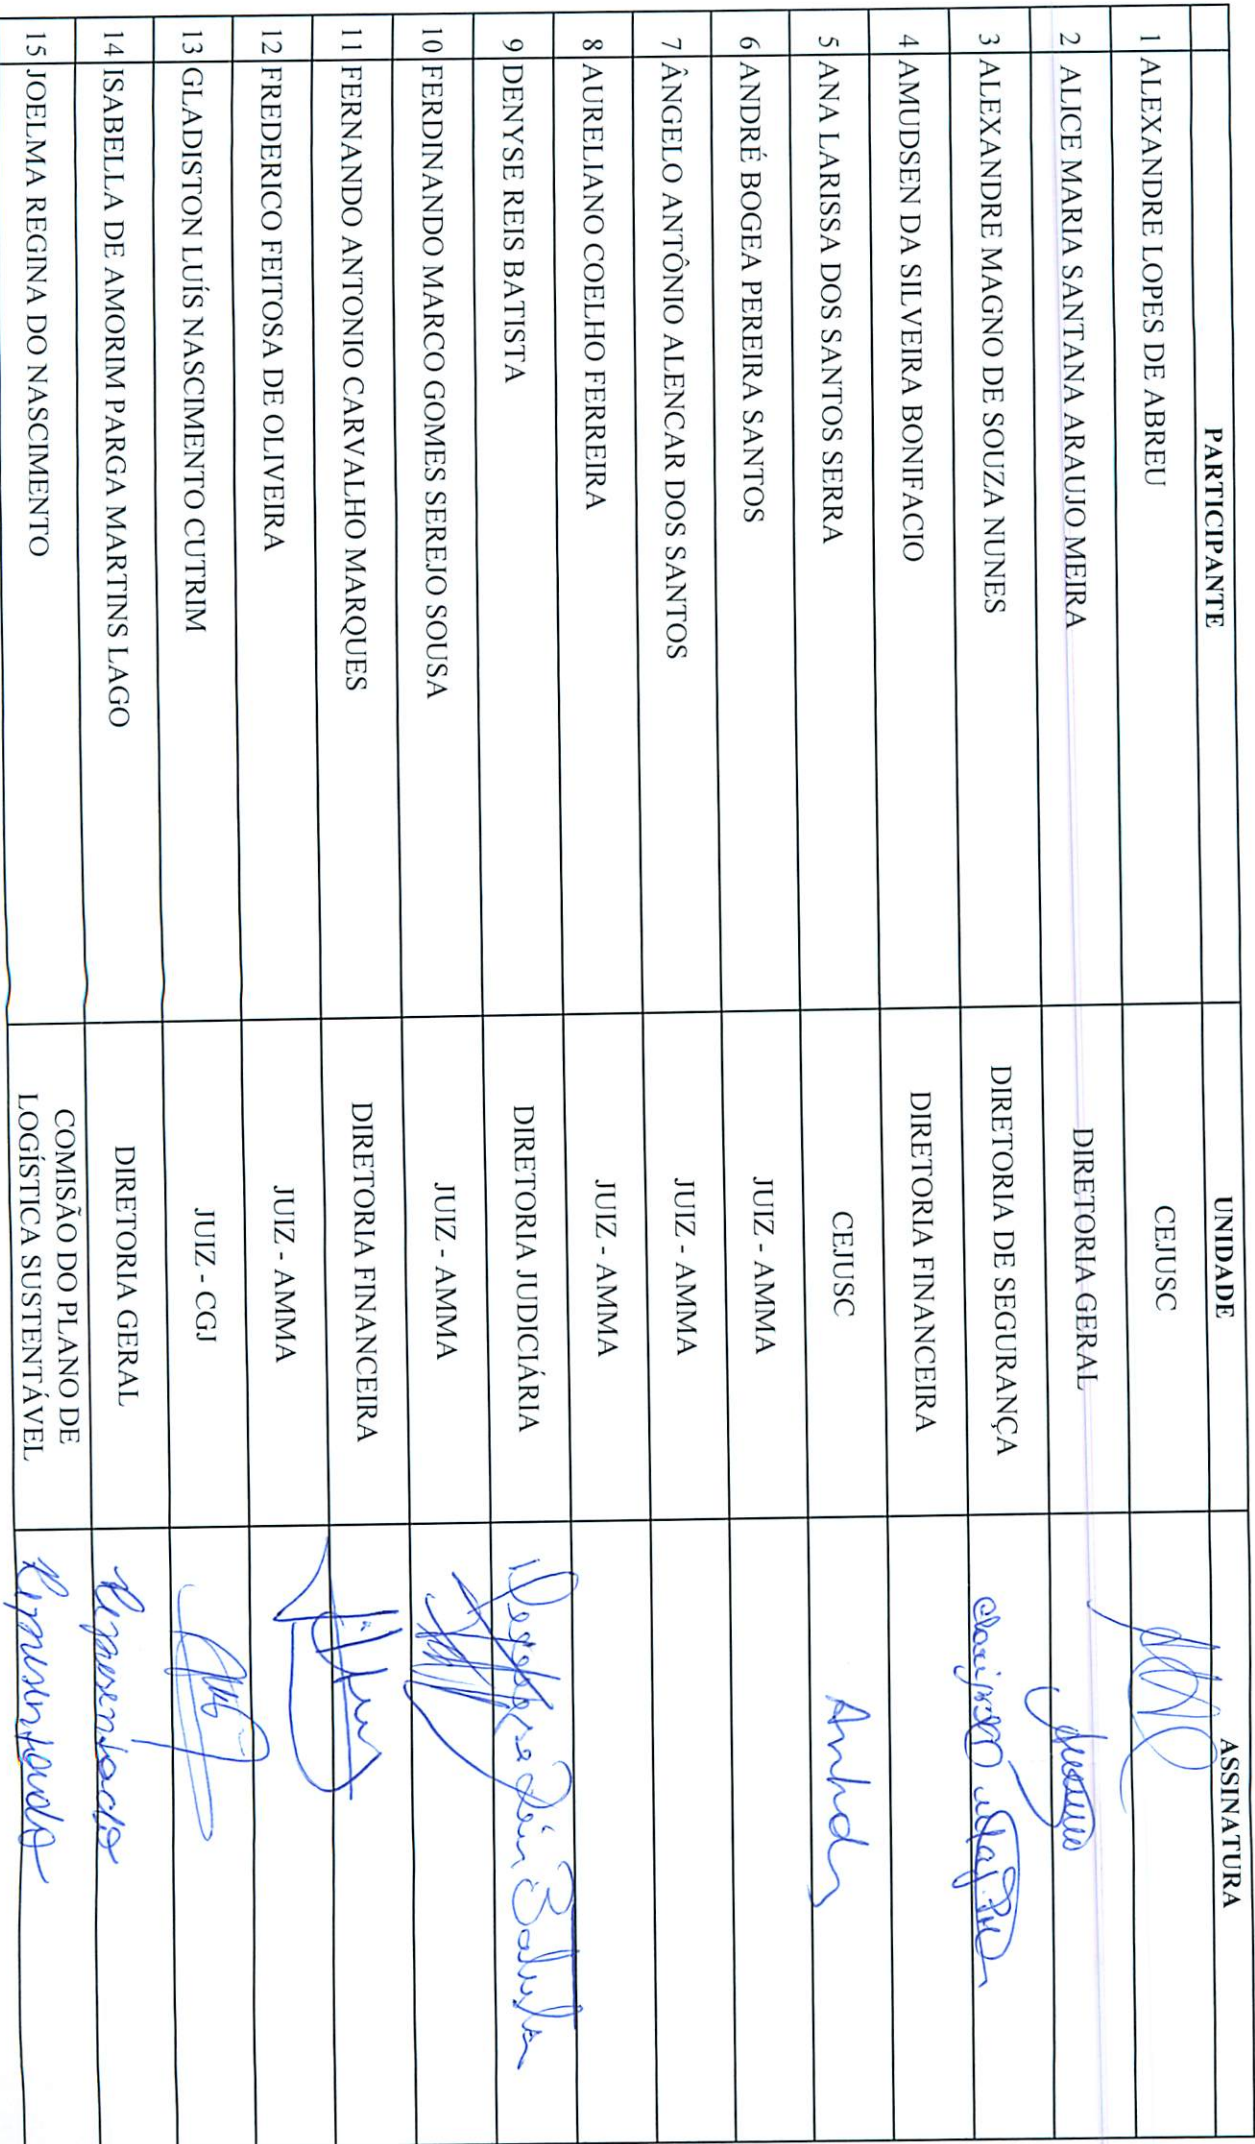 PARTICIPANTE UNIDADE ASSINATURA
1 ALEXANDRE LOPES DE ABREU CEJUSC
2 ALICE MARIA SANTANA ARAUJO MEIRA DIRETORIA GERAL
3 ALEXANDRE MAGNO DE SOUZA NUNES DIRETORIA DE SEGURANÇA
4 AMUDSEN DA SILVEIRA BONIFACIO DIRETORIA FINANCEIRA
5 ANA LARISSA DOS SANTOS SERRA CEJUSC
6 ANDRÉ BOGEA PEREIRA SANTOS JUIZ - AMMA
7 ÂNGELO ANTÔNIO ALENCAR DOS SANTOS JUIZ - AMMA
8 AURELIANO COELHO FERREIRA JUIZ - AMMA
9 DENYSE REIS BATISTA DIRETORIA JUDICIÁRIA Denyse Reis Batista
10 FERDINANDO MARCO GOMES SEREJO SOUSA JUIZ - AMMA
11 FERNANDO ANTONIO CARVALHO MARQUES DIRETORIA FINANCEIRA
12 FREDERICO FEITOSA DE OLIVEIRA JUIZ - AMMA
13 GLADISTON LUÍS NASCIMENTO CUTRIM JUIZ - CGJ
14 ISABELLA DE AMORIM PARGA MARTINS LAGO DIRETORIA GERAL Representado
15 JOELMA REGINA DO NASCIMENTO COMISÃO DO PLANO DE
LOGÍSTICA SUSTENTÁVEL Representado